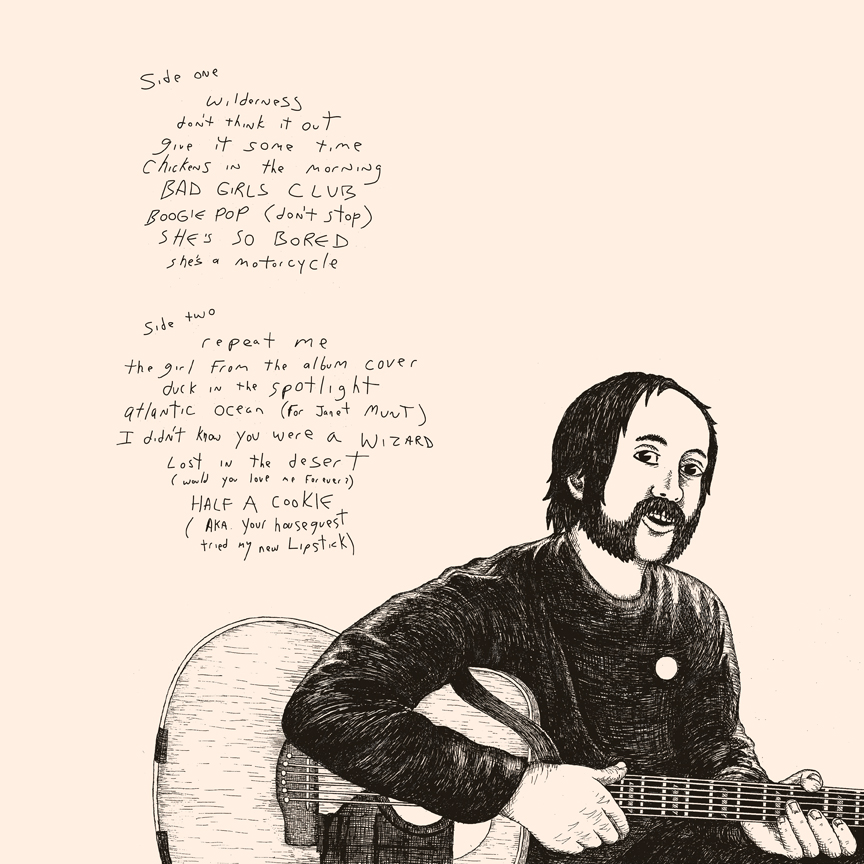 Side one
wilderness
don't think it out
give it some time
Chickens in the morning
BAD GIRLS CLUB
BOOGIE POP (don't stop)
SHE'S SO BORED
she's a motorcycle
Side two
repeat me
the girl from the album cover
duck in the spotlight
atlantic ocean (for Janet MUNT)
I didn't know you were a WIZARD
Lost in the desert
(would you love me Forever?)
HALF A COOKIE
( AKA. your houseguest
tried my new Lipstick)